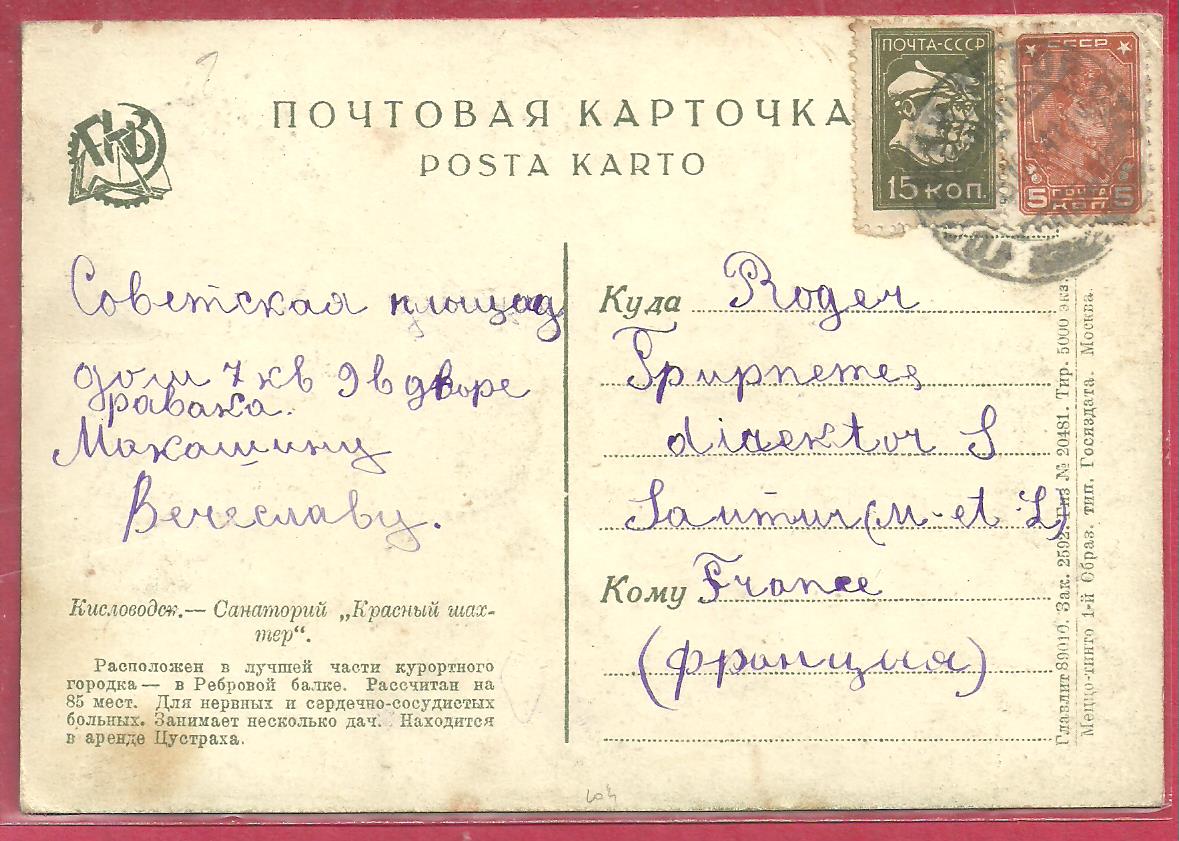 ПОЧТОВАЯ КАРТОЧКА
POSTA KARTO
ГИЗ
ПОЧТА-СССР
15 КОП.
СССР
5 ПОЧТА 5
КОП.
Советская площад
дом 7 кв 9 в дворе
Макашину
Вечеславу.
Кисловодск.— Санаторий „Красный шах-
тер“.
Расположен в лучшей части курортного
городка — в Ребровой балке. Рассчитан на
85 мест. Для нервных и сердечно-сосудистых
больных. Занимает несколько дач. Находится
в аренде Цустраха.
Куда Roger
direktor S
(M-et-L)
Кому France
(франция)
Главлит 89010. Зак. 2592. Гиз № 20481. Тир. 5000 экз.
Меццо-тинто 1-й Образ. тип. Госиздата. Москва.